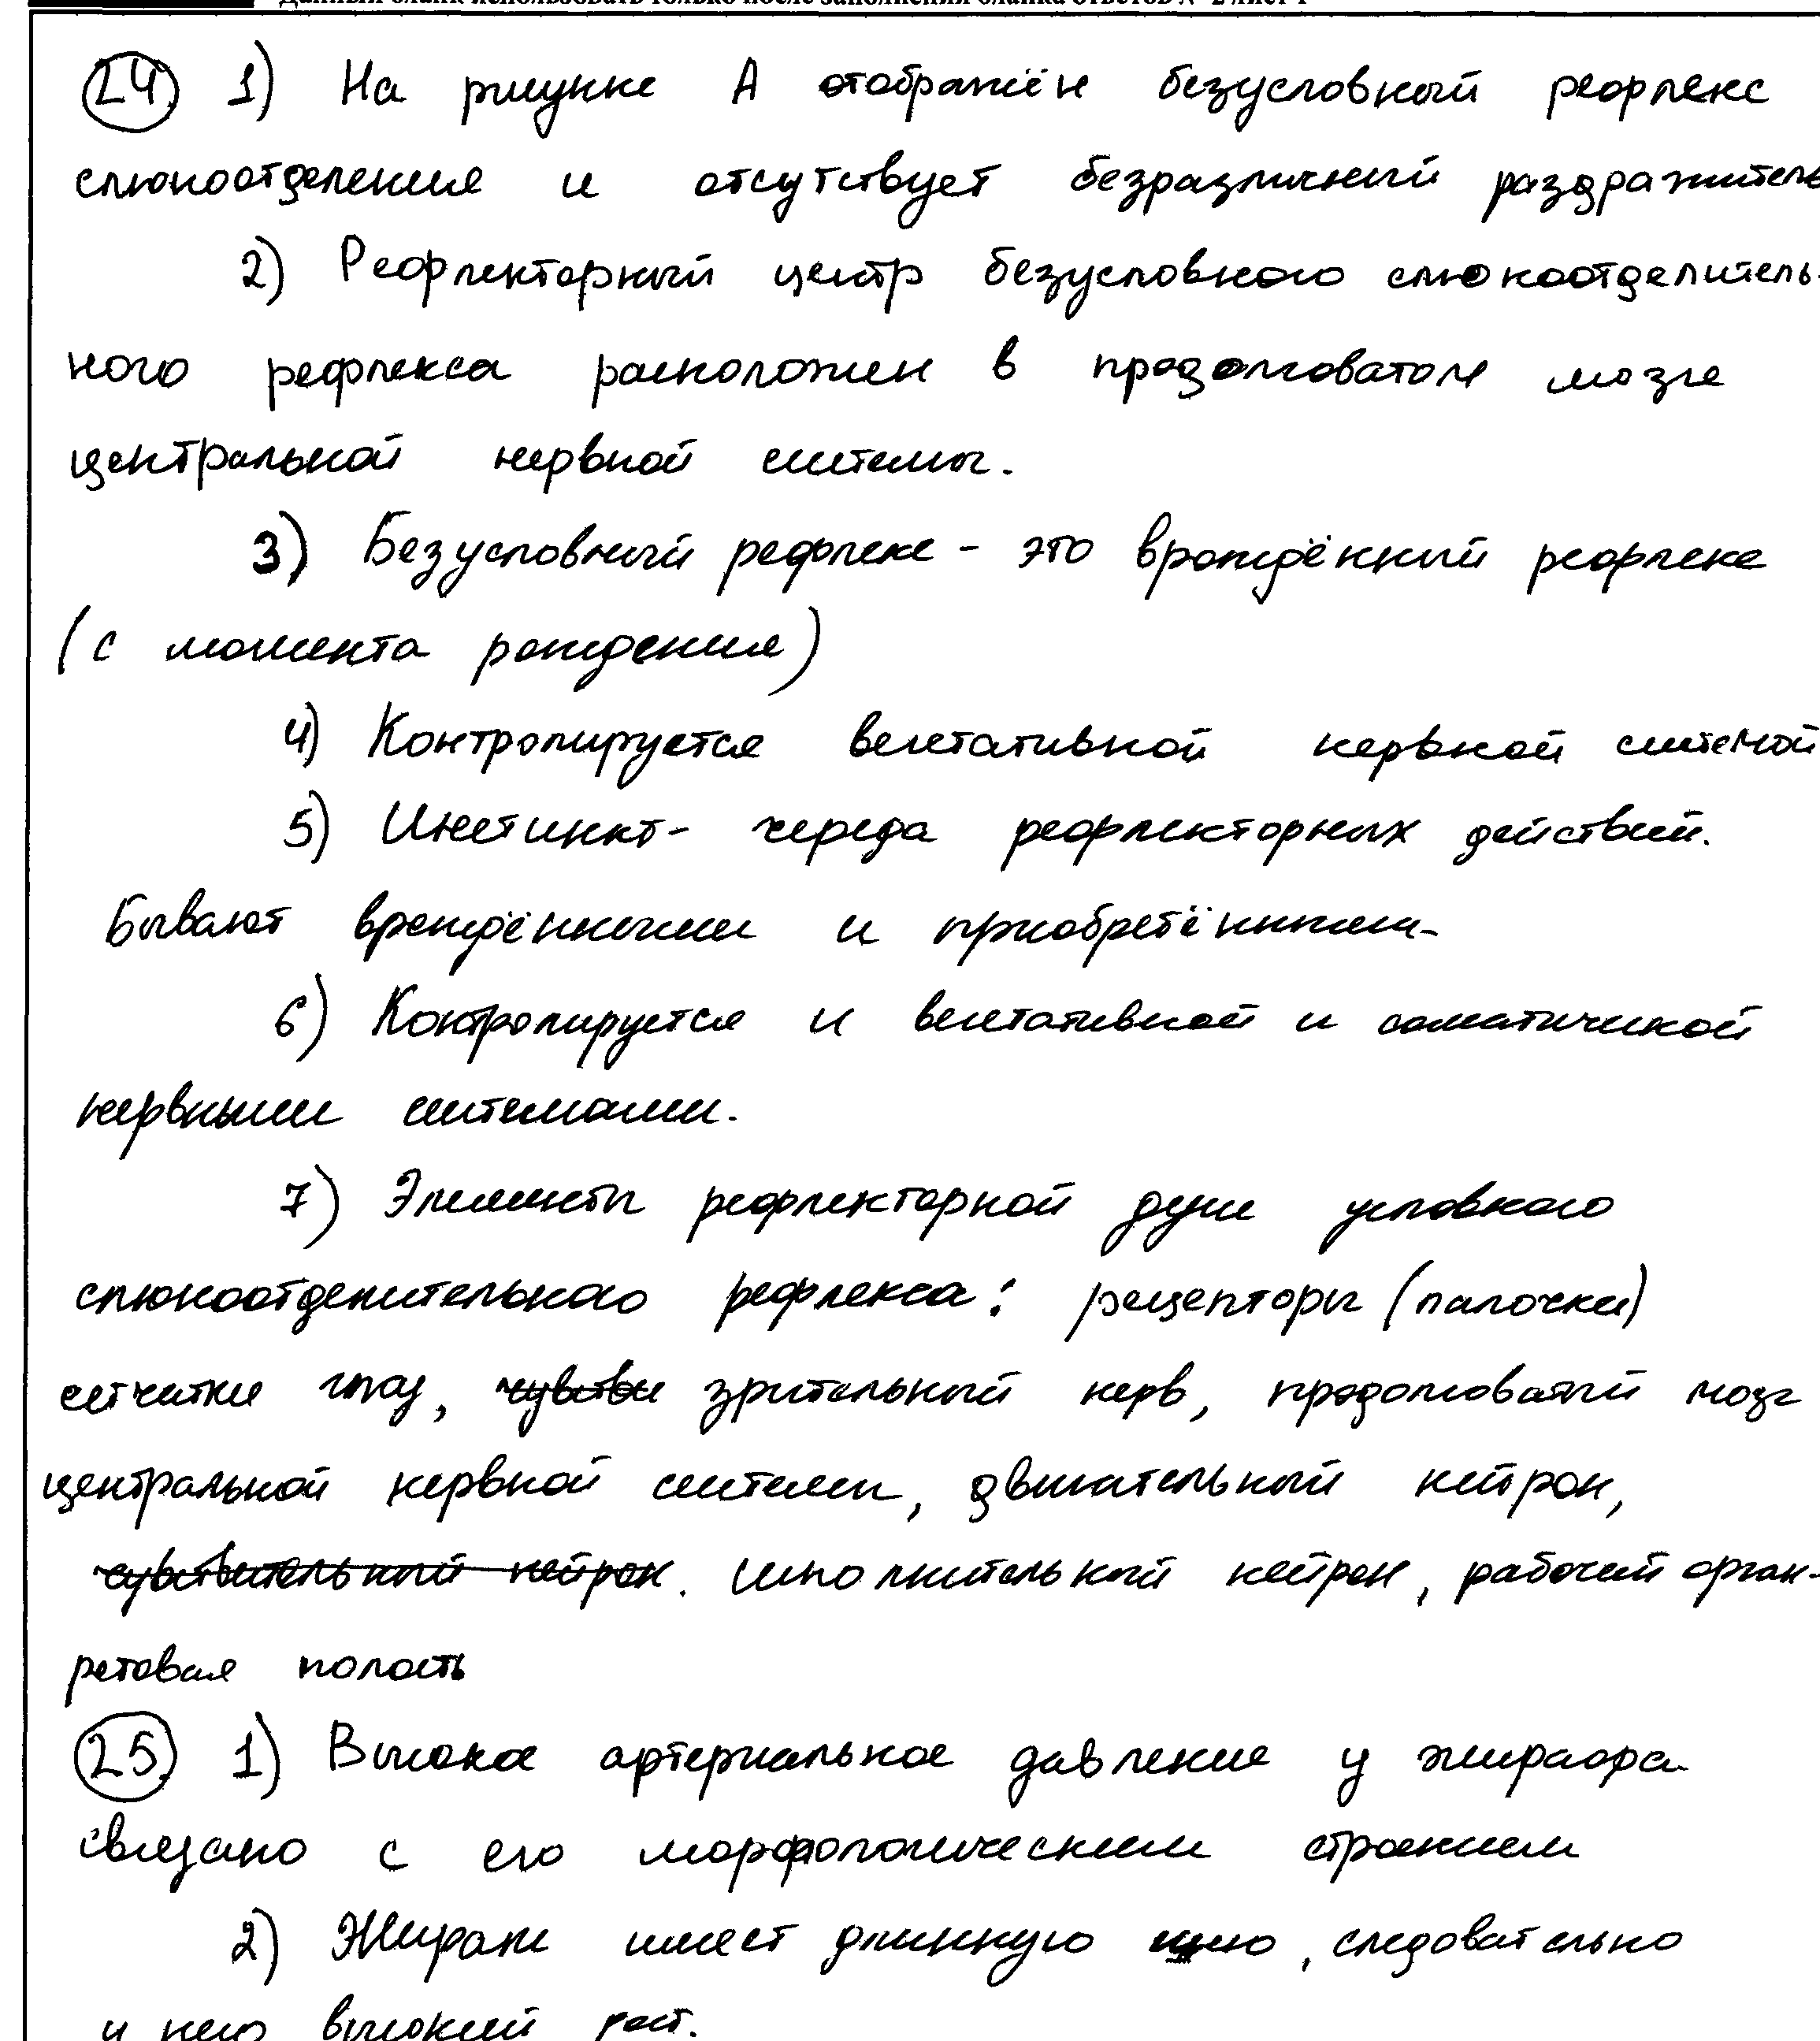 Данный бланк использовать только после заполнения бланка ответов № 2 лист 1
24) 1) На рисунке А отображён безусловный рефлекс
слюноотделения и отсутствует безразличный раздражитель
2) Рефлекторный центр безусловного слюноотделитель-
ного рефлекса расположен в продолговатом мозге
центральной нервной системы.
3) Безусловный рефлекс - это врождённый рефлекс
(с момента рождения)
4) Контролируется вегетативной нервной системой
5) Инстинкт - череда рефлекторных действий.
Бывают врождёнными и приобретёнными.
6) Контролируется и вегетативной и соматической
нервными системами.
7) Элементы рефлекторной дуги условного
слюноотделительного рефлекса: рецепторы (палочки)
сетчатки глаз, зрительный нерв, продолговатый мозг
центральной нервной системы, двигательный нейрон,
чувствительный нейрон. исполнительный нейрон, рабочий орган -
ротовая полость
25) 1) Высокое артериальное давление у жирафа
связано с его морфологическим строением
2) Жираф имеет длинную шею, следовательно
у него высокий рост.